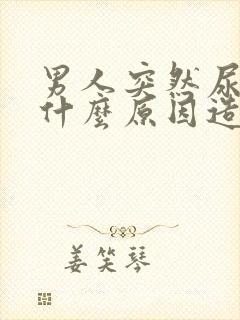 男人突然尿
什麼原因造
姜笑琴